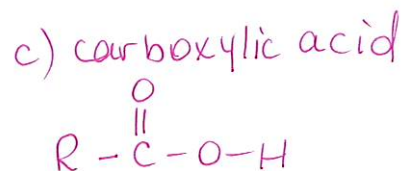 c) carboxylic acid
O
||
R - C - O - H